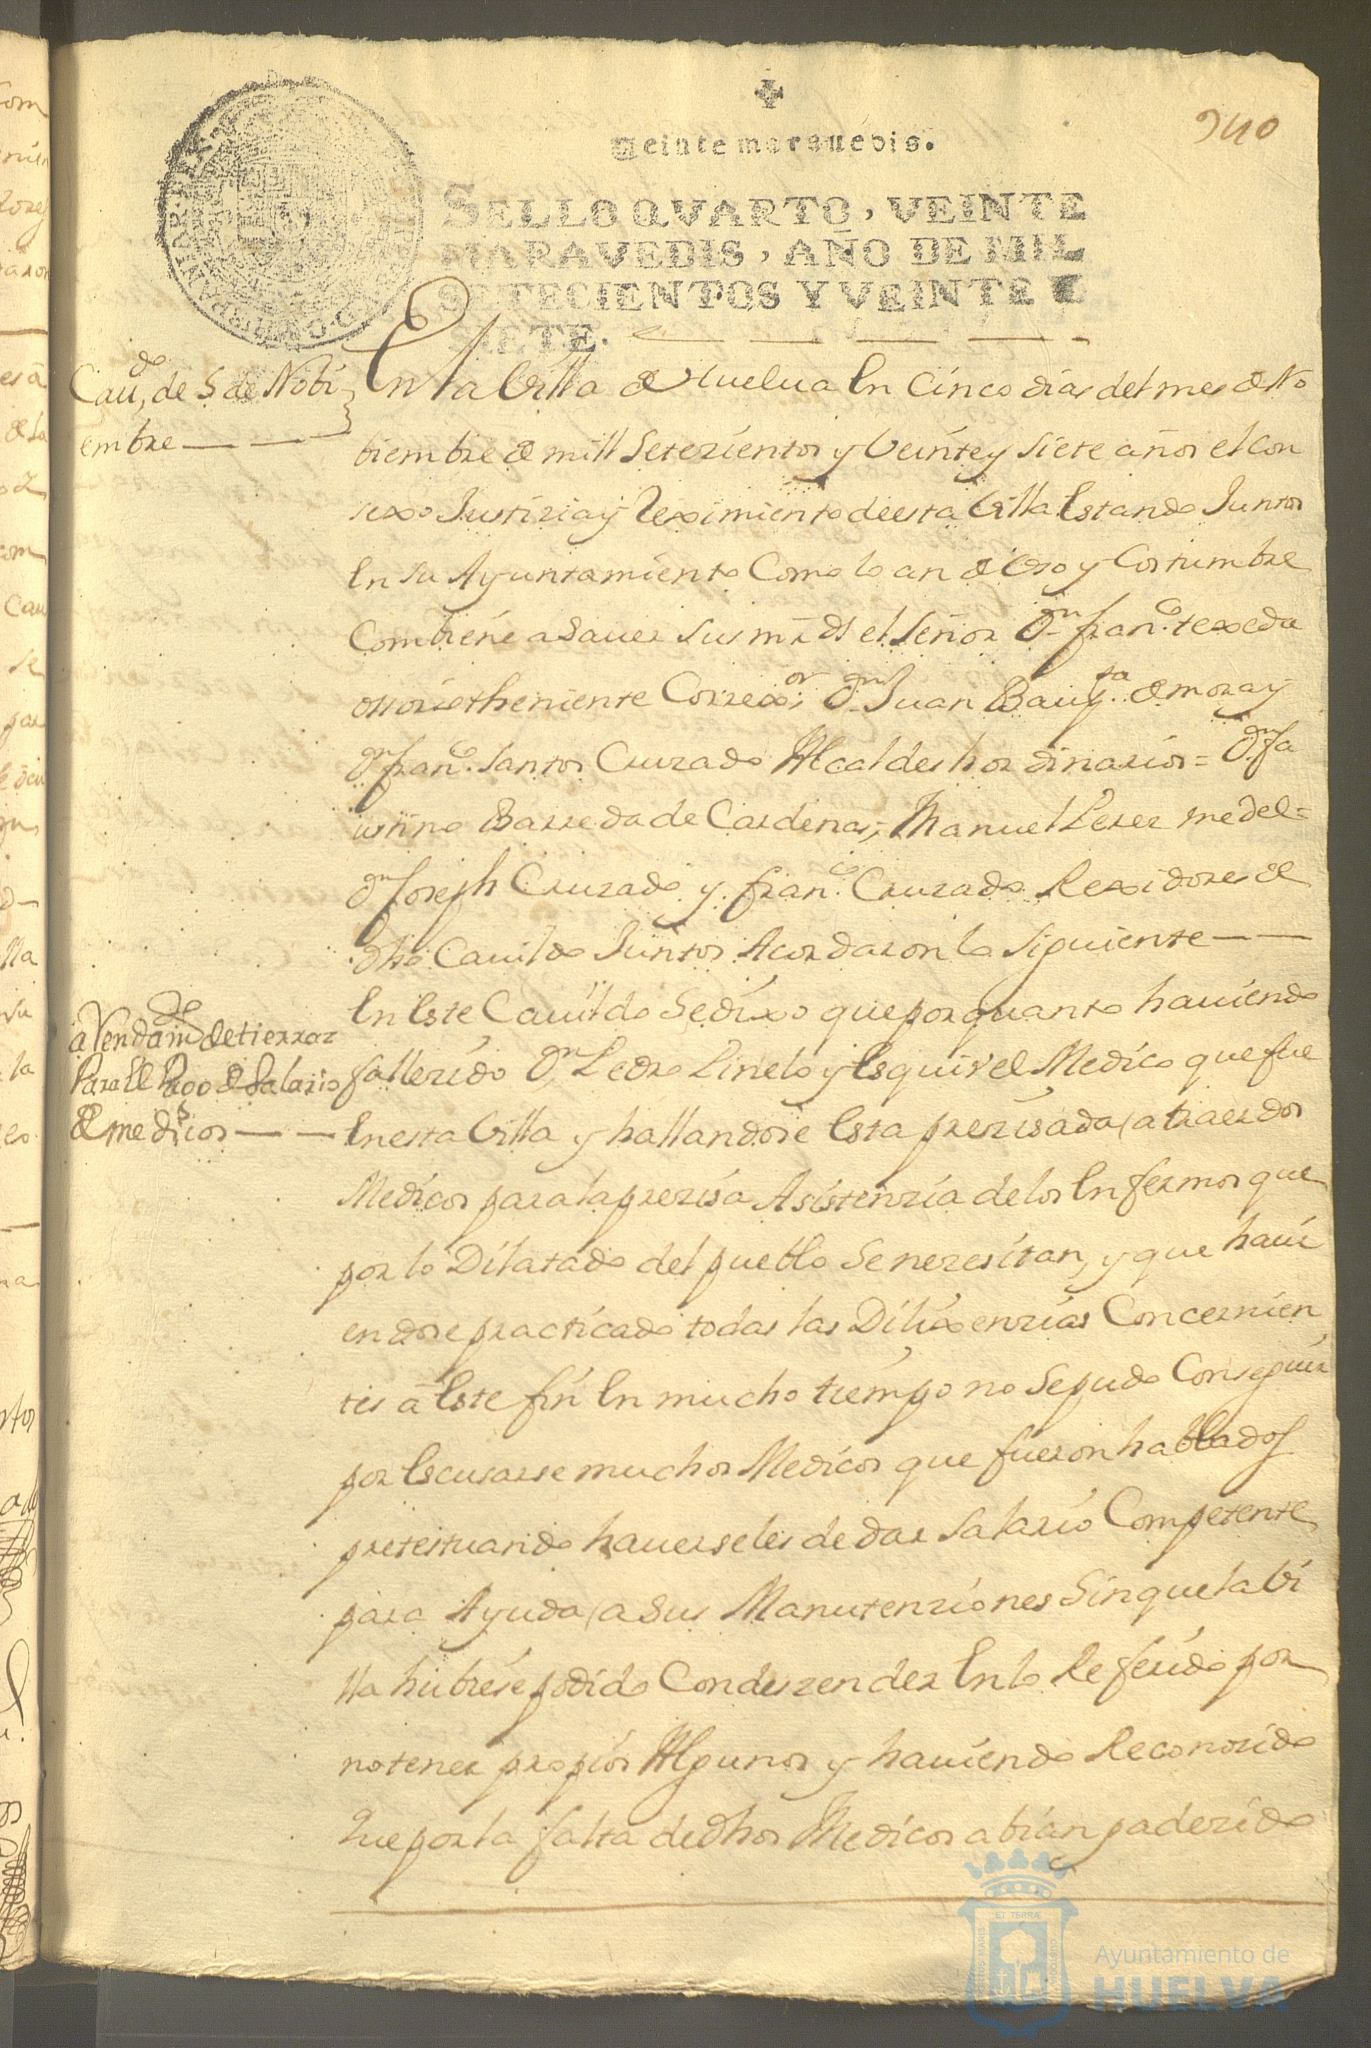 940
Veinte maravedis.
SELLO QVARTO, VEINTE
MARAVEDIS, AÑO DE MIL
SETECIENTOS Y VEINTE Y
SIETE.
Cauᵈᵒ, de 5 de Nobi
embre
En la Villa de Huelua En Cinco dias del mes de No
biembre de mill Setezientos y Veinte y siete años el Con
sexo Justizia y Reximiento de esta Villa Estando Juntos
En su Ayuntamiento Como lo an de Uso y Costumbre
Combiene a Sauer sus mrds el Señor Dⁿ franᶜᵒ texeda
ossorio theniente Correxᵒʳ Dⁿ Juan Baupᵗᵃ de mora y
Dⁿ franᶜᵒ santos Cruzado Alcaldes hordinarios = Dⁿ fa
ustino Barreda de Cardenas, Manuel Perez medel =
Dⁿ Joseph Cruzado y franᶜᵒ Cruzado Rexidores de
dho Cauildo Juntos Acordaron lo Siguiente
a Rendamᵗᵒ de tierras
Para El Pago de Salario
de medicos
En Este Cauildo Se dixo que por quanto hauiendo
fallezido Dⁿ Pedro Pinelo y Esquivel Medico que fue
En esta Villa y hallandose Esta prezisada a traer dos
Medicos para la prezisa Asistenzia de los Enfermos que
por lo Dilatado del pueblo Se nezesitan, y que haui
endose practicado todas las Dilixenzias Concernien
tes a Este fin En mucho tiempo no Se pudo Conseguir
por Escusarse muchos Medicos que fueron hablados
pretestuando hauerseles de dar Salario Competente
para Ayuda a sus Manutenziones Sin que la Vi
lla hubiese podido Condezender En lo Referido por
no tener propios Algunos y hauiendo Reconozido
Que por la falta de dhos Medicos abian padezido
Ayuntamiento de
HUELVA